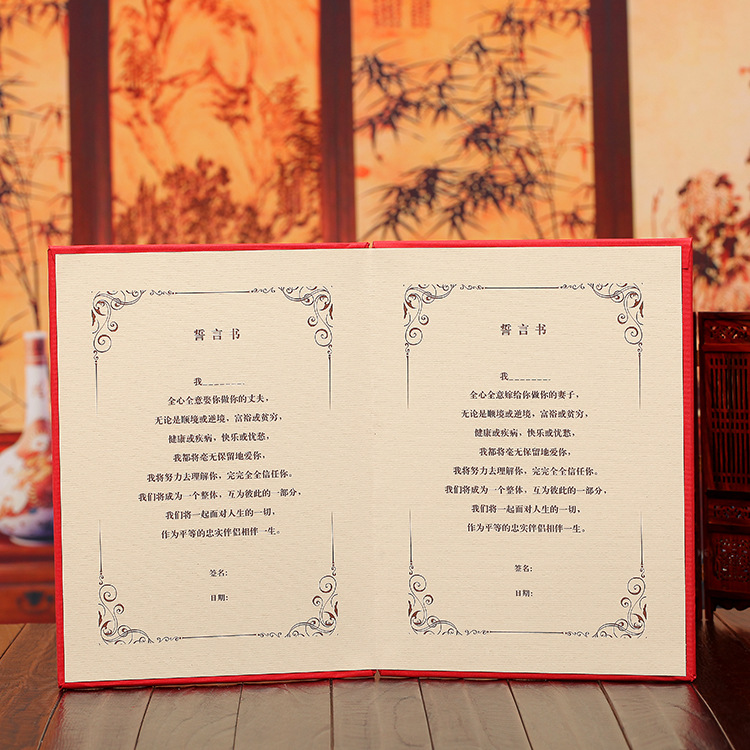 誓言书
我_______
全心全意娶你做你的丈夫，
无论是顺境或逆境，富裕或贫穷，
健康或疾病，快乐或忧愁，
我都将毫无保留地爱你，
我将努力去理解你，完完全全信任你。
我们将成为一个整体，互为彼此的一部分，
我们将一起面对人生的一切，
作为平等的忠实伴侣相伴一生。
签名：
日期：
誓言书
我_______
全心全意嫁给你做你的妻子，
无论是顺境或逆境，富裕或贫穷，
健康或疾病，快乐或忧愁，
我都将毫无保留地爱你，
我将努力去理解你，完完全全信任你。
我们将成为一个整体，互为彼此的一部分，
我们将一起面对人生的一切，
作为平等的忠实伴侣相伴一生。
签名：
日期：